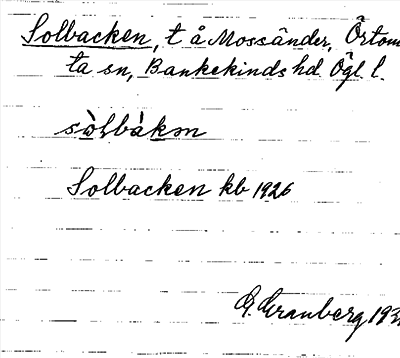 Solbacken, t å Mossänder, Örtom
ta sn, Bankekinds hd. Ögl. l.
sòlbàkən
Solbacken kb 1926
G. Cranberg 193